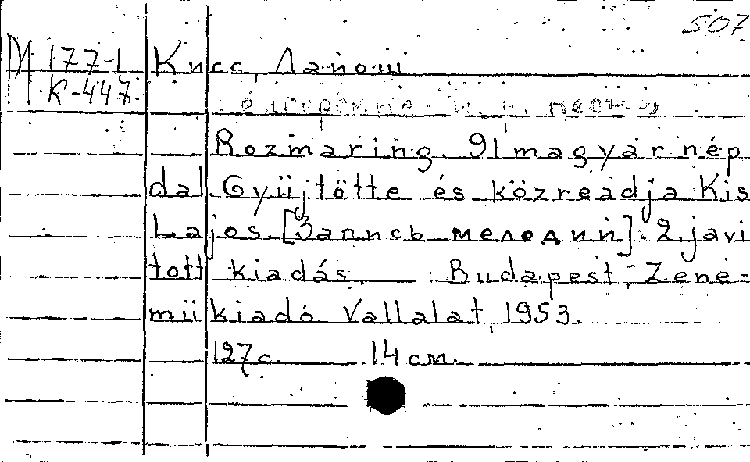 507
М 177-1 Кисс, Лайош
К-447
и. н.
Rozmaring. 91 magyar nép
dal. Gyüjtötte és közreadja Kis
Lajos. [Запись мелодий]. 2. javi
tott kiadás. Budapest, Zene-
mükiadó Vallalat, 1953.
127 с. 14 см.